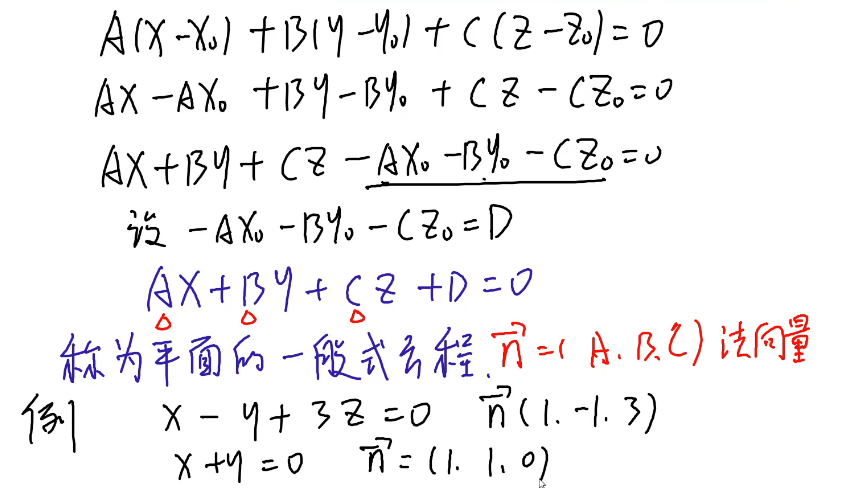 A(X-X₀)+B(Y-Y₀)+C(Z-Z₀)=0
AX-AX₀+BY-BY₀+CZ-CZ₀=0
AX+BY+CZ-AX₀-BY₀-CZ₀=0
设 -AX₀-BY₀-CZ₀=D
AX+BY+CZ+D=0
称为平面的一般式方程. n⃗=(A.B.C)法向量
例 X-Y+3Z=0 n⃗(1.-1.3)
X+Y=0 n⃗=(1.1.0)